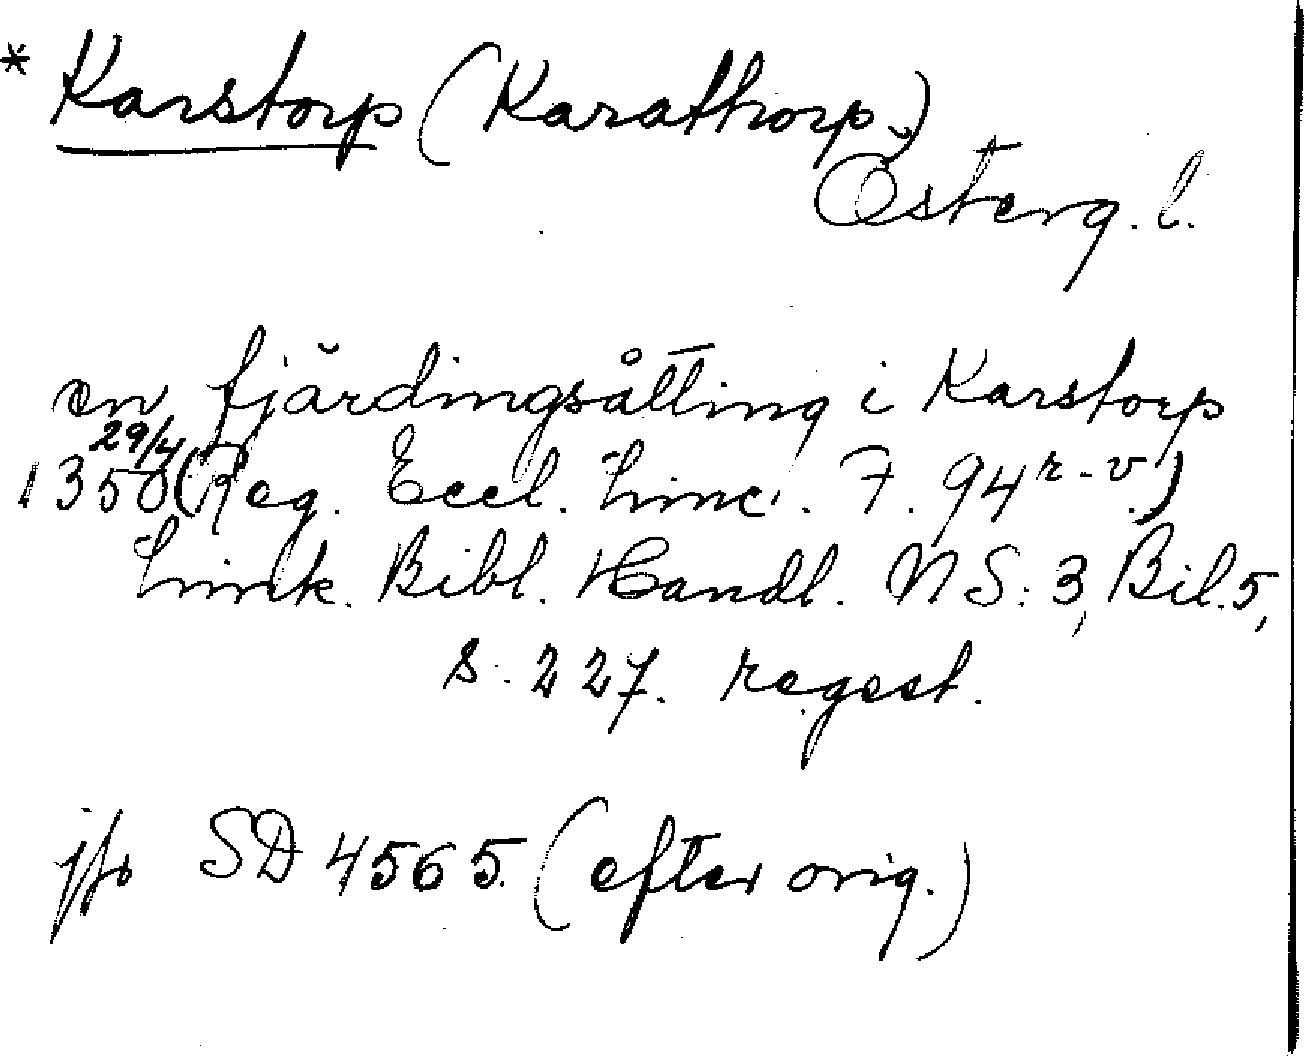 * Karstorp (Karathorp.)
Österg. l.
en fjärdingsåtting i Karstorp
29/4
1350 (Reg. Eccl. Linc. F. 94 r-v.)
Link. Bibl. Handl. NS: 3, Bil. 5,
s. 227. regest.
jfr SD 4565. (efter orig.)